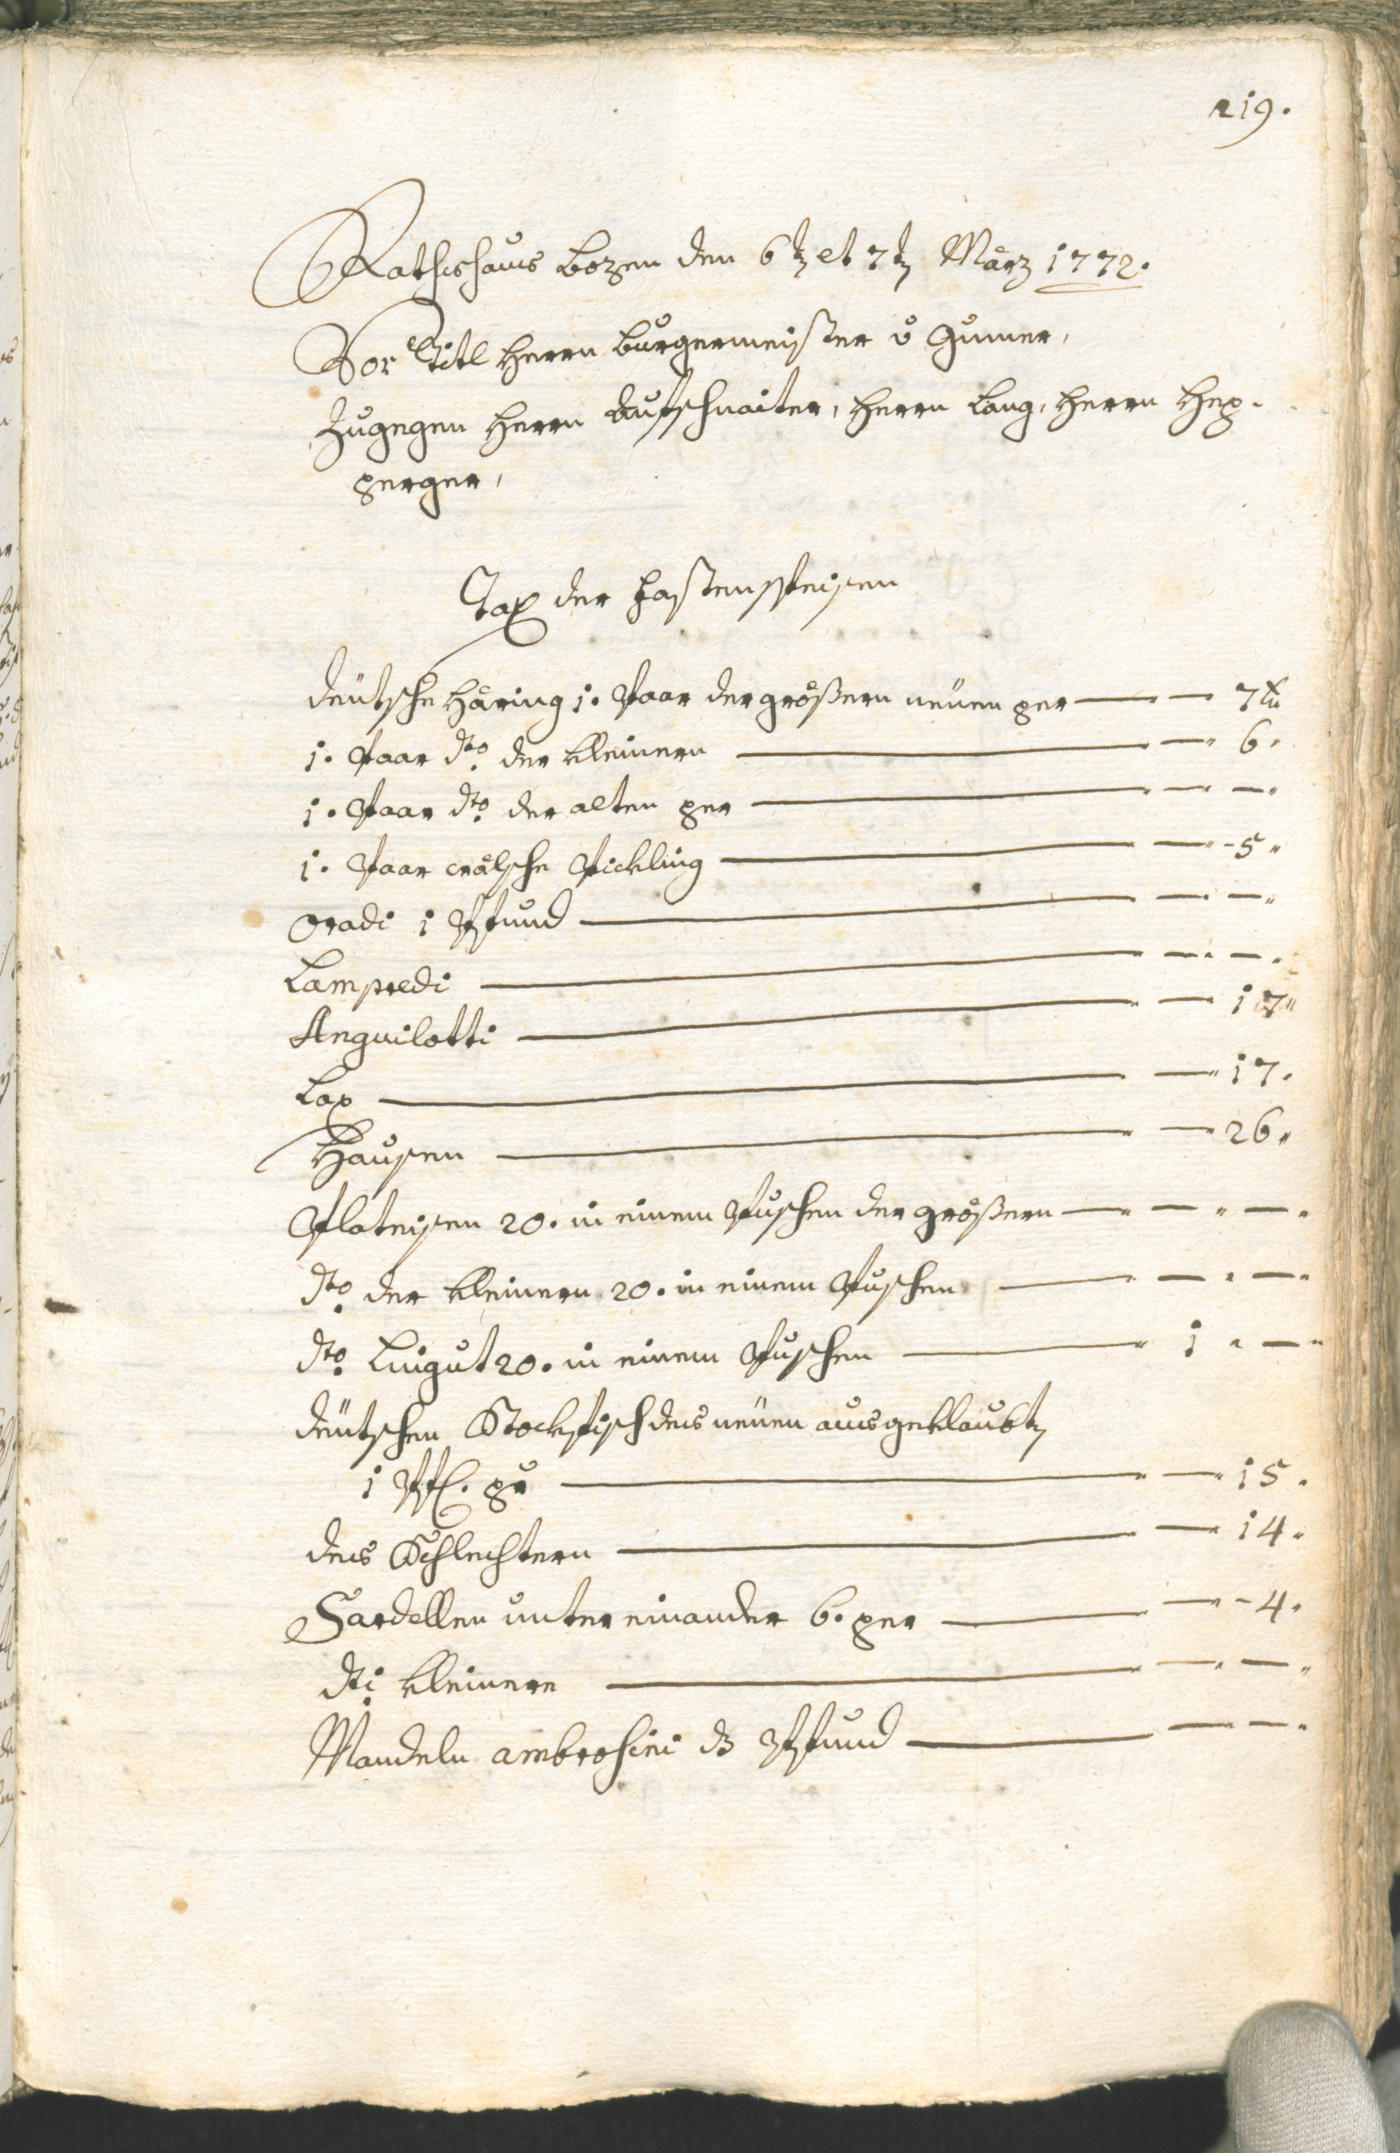 219.
Rathshaus Bozen den 6t et 7t März 1772.
Vor Titl Herrn Burgermeister v Gumer,
Zugegen Herrn Aufschnaiter, Herrn Lang, Herrn Hep-
perger,
Tax der Fastenspeisen
Deutsche Häring 1. Paar der größern neüen per — — 7 xr
1. Paar dto. der kleinern — — 6.
1. Paar dto. der alten per — — —
1. Paar wälsche Pickling — — - 5 "
Oradi 1 Pfund — — —
Lampredi — — —
Anguilotti — — 17 "
Lax — — 17.
Hausen — — 26 "
Plateisen 20. in einem Puschen der größern — — —
dto. der kleinern 20. in einem Puschen — — —
dto. Lingut 20. in einem Puschen — 1 " —
deutschen Stockfisch des neüen ausgeklaubt
1 Pf. per — — 15.
des Schlechtern — — 14.
Sardellen untereinander 6. per — — - 4.
dti kleinere — — —
Mandeln ambrosini das Pfund — — —